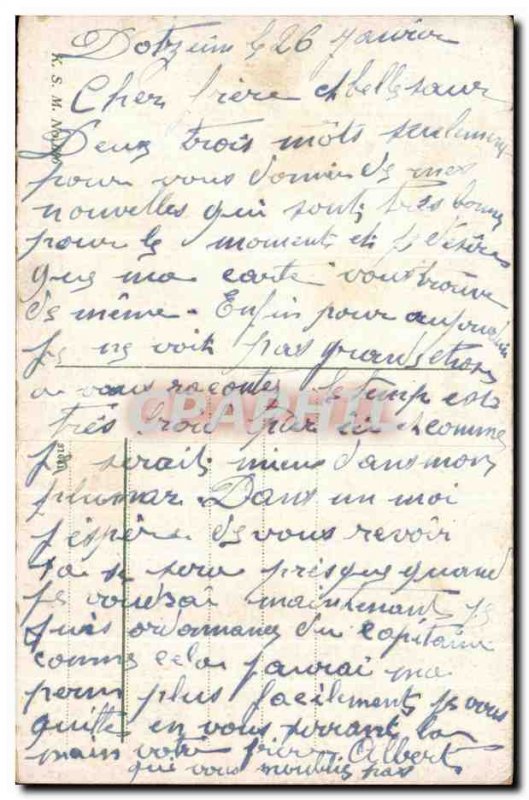 Dotzeim le 26 Janvier
Cher frère et belle sœur
Deux trois môts seulement
pour vous donner de mes
nouvelles qui sont très bonnes
pour le moment et je désire
que ma carte vous trouve
de même. Enfin pour aujourd'hui
je ne voit pas grand chose
a vous raconter le temp est
très froi par ici et comme
je serait mieu dans mon
plumar. Dans un moi
j'espère de vous revoir
sa se sera presque quand
je voudrai maintenant je
suis ordonnance du capitaine
comme cela j'aurai ma
perm plus facilement je vous
quitte en vous serrant la
main votre frère Albert
qui vous n'oublis pas
K. S. M. No
CPAPHIL